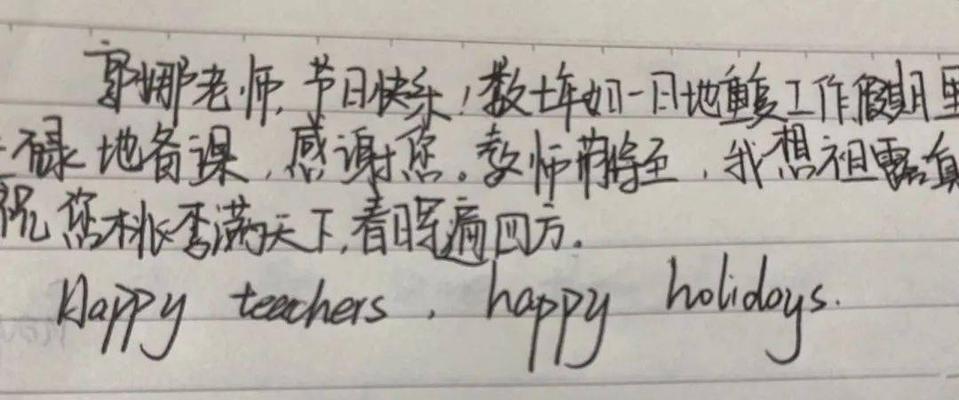 郭娜老师,节日快乐!数十年如一日地重复工作假期里
碌地备课,感谢您。教师节将至,我想祖露真
祝您桃李满天下,春晖遍四方。
Happy teachers, happy holidays.